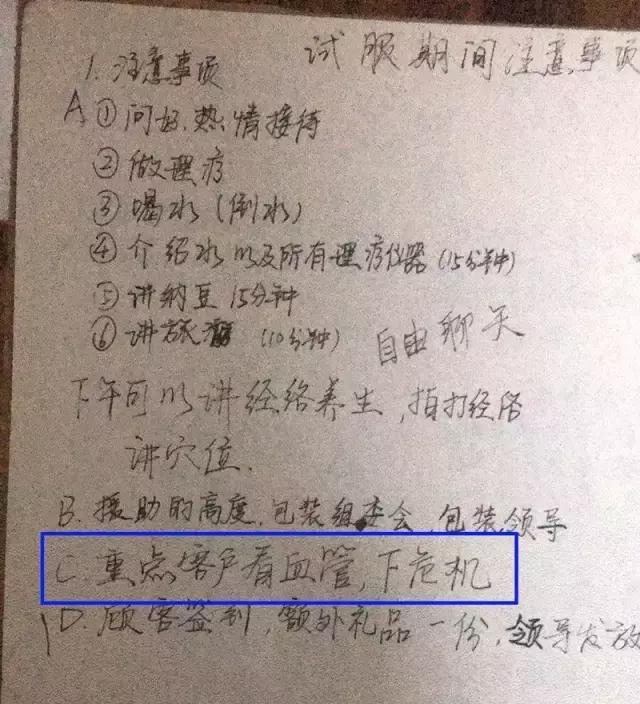 试服期间注意事项
1. 注意事项
A ① 问好,热情接待
② 做理疗
③ 喝水(倒水)
④ 介绍水以及所有理疗仪器(15分钟)
⑤ 讲纳豆15分钟
⑥ 讲旅游(10分钟) 自由聊天
下午可以讲经络养生,拍打经络
讲穴位.
B. 援助的高度,包装组委会,包装领导
C. 重点客户看血管,下危机
D. 顾客签到,额外礼品一份,领导发放